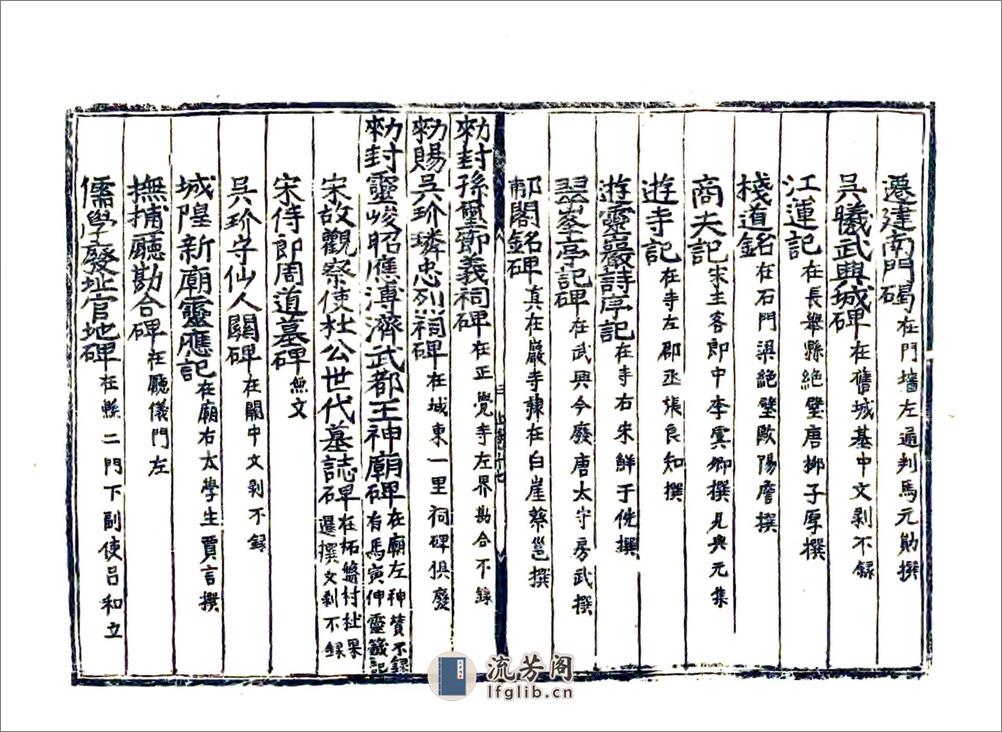 遷建南門碣在門墻左通判馬元勛撰
吳曦武興城碑在舊城基中文剥不錄
江運記在長舉縣絕壁唐柳子厚撰
棧道銘在石門梁絕壁歐陽詹撰
商夫記宋主客郎中李虞卿撰見興元集
遊寺記在寺左郡丞張良知撰
遊靈巖詩序記在寺右宋鮮于侁撰
翠峯亭記碑在武興今廢唐太守房武撰
郙閣銘碑真在巖寺隷在白崖蔡邕撰
勑封孫壁節義祠碑在正覺寺左界勘合不錄
勑賜吳玠璘忠烈祠碑在城東一里祠碑俱廢
勑封靈峻昭應溥濟武都王神廟碑在廟左神贊不錄
有馬寅伸靈籤記
宋故觀察使杜公世代墓誌碑在拓盤村杜杲
碑暹撰文剥不錄
宋侍郎周道墓碑無文
吳玠守仙人關碑在關中文剥不錄
城隍新廟靈應記在廟右太學生賈言撰
撫捕廳勘合碑在廳儀門左
儒學廢址官地碑在縣二門下副使呂和立
流芳阁
lfglib.cn